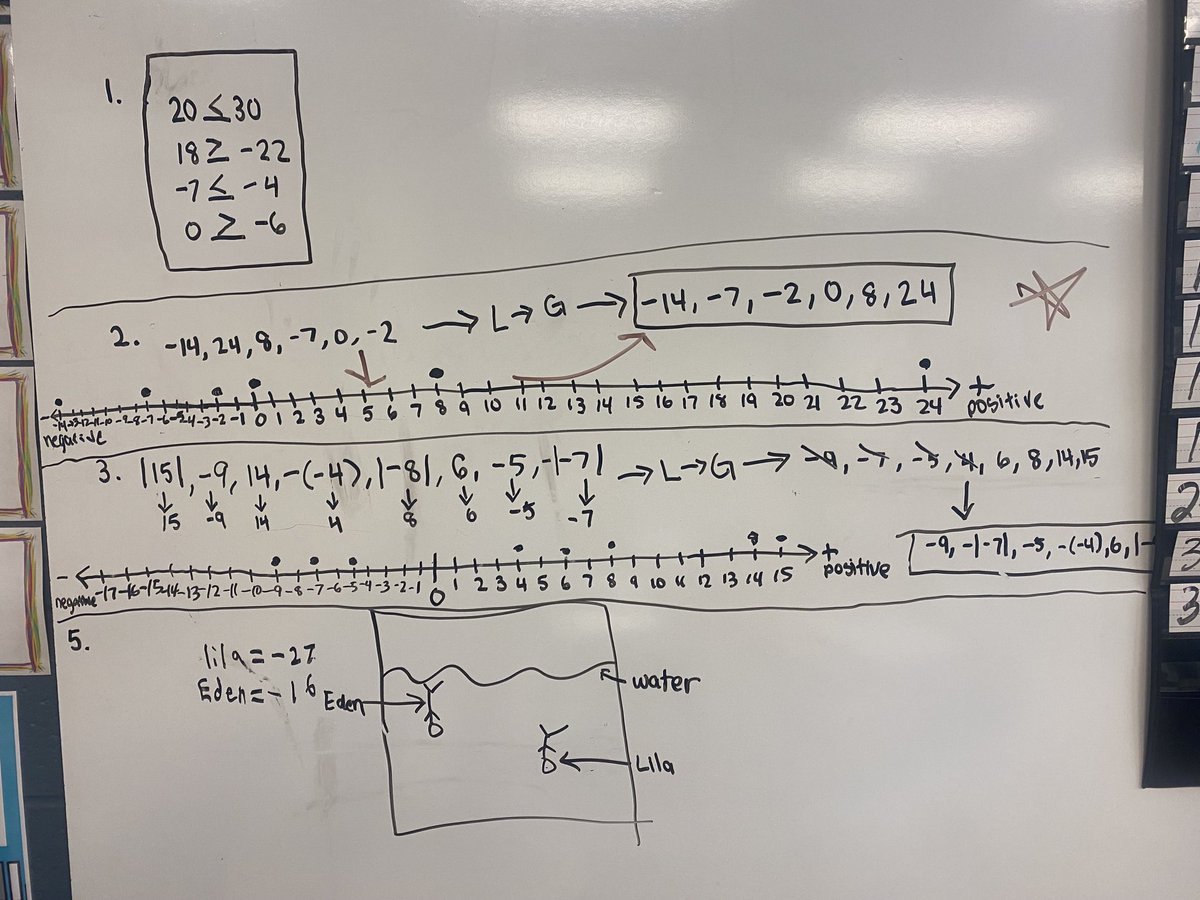 1.
20 ≤ 30
18 ≥ -22
-7 ≤ -4
0 ≥ -6
2. -14, 24, 8, -7, 0, -2 → L → G → -14, -7, -2, 0, 8, 24
-2 -1 0 1 2 3 4 5 6 7 8 9 10 11 12 13 14 15 16 17 18 19 20 21 22 23 24 + positive
negative
3. |15|, -9, 14, -(-4), |-8|, 6, -5, -|-7| → L → G → -9, -7, -5, 4, 6, 8, 14, 15
15 -9 14 4 8 6 -5 -7
-9, -|-7|, -5, -(-4), 6, |-
- -17 -16 -15 -14 -13 -12 -11 -10 -9 -8 -7 -6 -5 -4 -3 -2 -1 0 1 2 3 4 5 6 7 8 9 10 11 12 13 14 15 + positive
negative
5.
lila = -27
Eden = -16
Eden
water
Lila
2
3
3